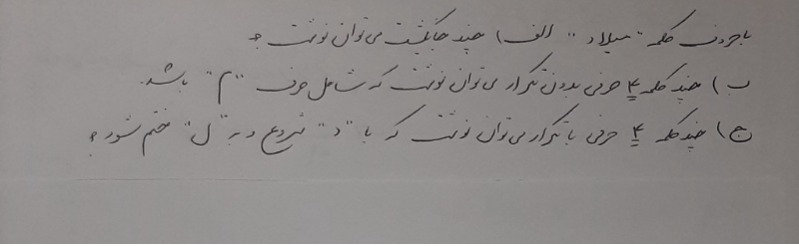 با حروف کلمه "میلاد" الف) چند جایگشت می توان نوشت؟
ب) چند کلمه ۴ حرفی بدون تکرار می توان نوشت که شامل حرف "م" باشد.
ج) چند کلمه ۴ حرفی با تکرار می توان نوشت که با "د" شروع و به "ل" ختم شود؟